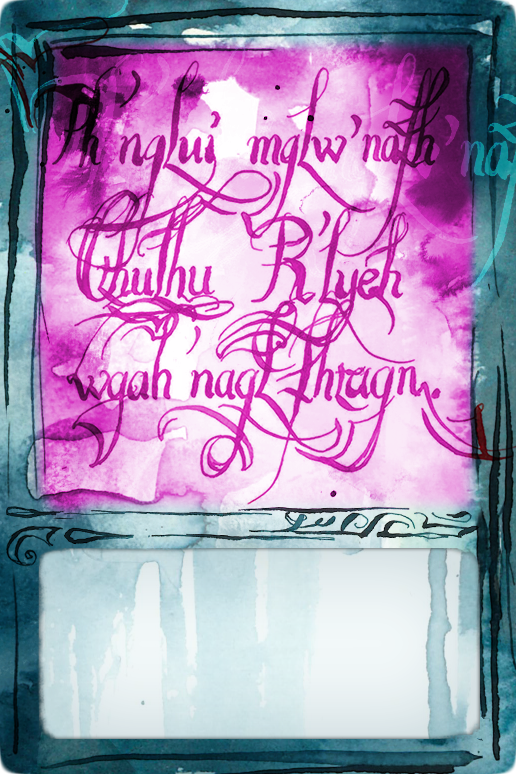 Ph'nglui mglw'nafh
Cthulhu R'lyeh
wgah'nagl fhtagn.